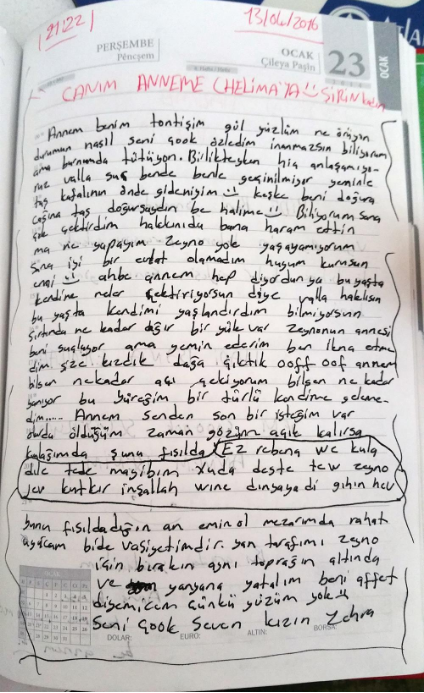 21:22
13/04/2016
PERŞEMBE
Pêncşem
OCAK
Çileya Paşîn
23
OCAK
CANIM ANNEME (HELİMA'YA) :) ŞİRİN kadın
Annem benim tontişim gül yüzlüm ne
durumun nasıl seni çook özledim inanmazsın biliyorum
ama burnumda tütüyon. Birlikteyken hiç anlaşamıyo-
ruz valla suç bende benle geçinilmiyor yeminle
taş kafalının önde gideniyim :) keşke beni doğura
cağına taş doğursaydın be halime :) Biliyorum sana
çok çektirdim hakkınıda bana haram ettin
ma ne yapayım Zeyno yok yaşayamıyorum
Sana iyi bir evlat olamadım huyum kurusun
emi :) ahbe annem hep diyordun ya bu yaşta
kendine neler çektiriyorsun diye valla haklısın
bu yaşta kendimi yaşlandırdım bilmiyorsun
sırtımda ne kadar ağır bir yük var Zeynonun annesi
beni suçluyor ama yemin ederim ben ikna etme
dim size kızdık dağa çıktık ooff oof annem
bilsen nekadar acı çekiyorum bilsen ne kadar
yanıyor bu yüreğim bir türlü kendime geleme-
dim.... Annem senden son bir isteğim var
öldüğüm zaman gözüm açık kalırsa
kulağımda şunu fısılda Ez rebena we kula
dile tede magibim xuda deste tew zeyno
jev kutkir inşallah wine dınyaya di gihın hev
bunu fısıldadığın an emin ol mezarımda rahat
uyucam bide vasiyetimdir. yan tarafımı zeyno
için bırakın aynı toprağın altında
ve yanyana yatalım beni affet
diyemicem çünkü yüzüm yok
Seni çook Seven kızın Zehra
DOLAR:
EURO:
ALTIN:
BORSA: